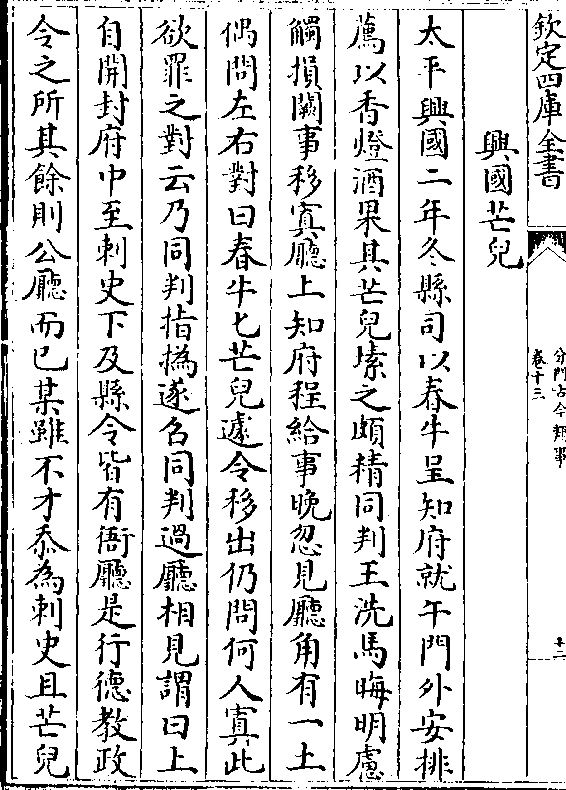 欽定四庫全書
分門古今類事
卷十三
十二
興國芒兒
太平興國二年冬縣司以春牛呈知府就午門外安排
薦以香燈酒果其芒兒塐之頗精同判王洗馬晦明慮
觸損闕事移寘廳上知府程給事晚忽見廳角有一土
偶問左右對曰春牛七芒兒遽令移出仍問何人寘此
欲罪之對云乃同判指撝遂召同判過廳相見謂曰上
自開封府中至刺史下及縣令皆有衙廳是行德教政
令之所其餘則公廳而已某雖不才忝為刺史且芒兒